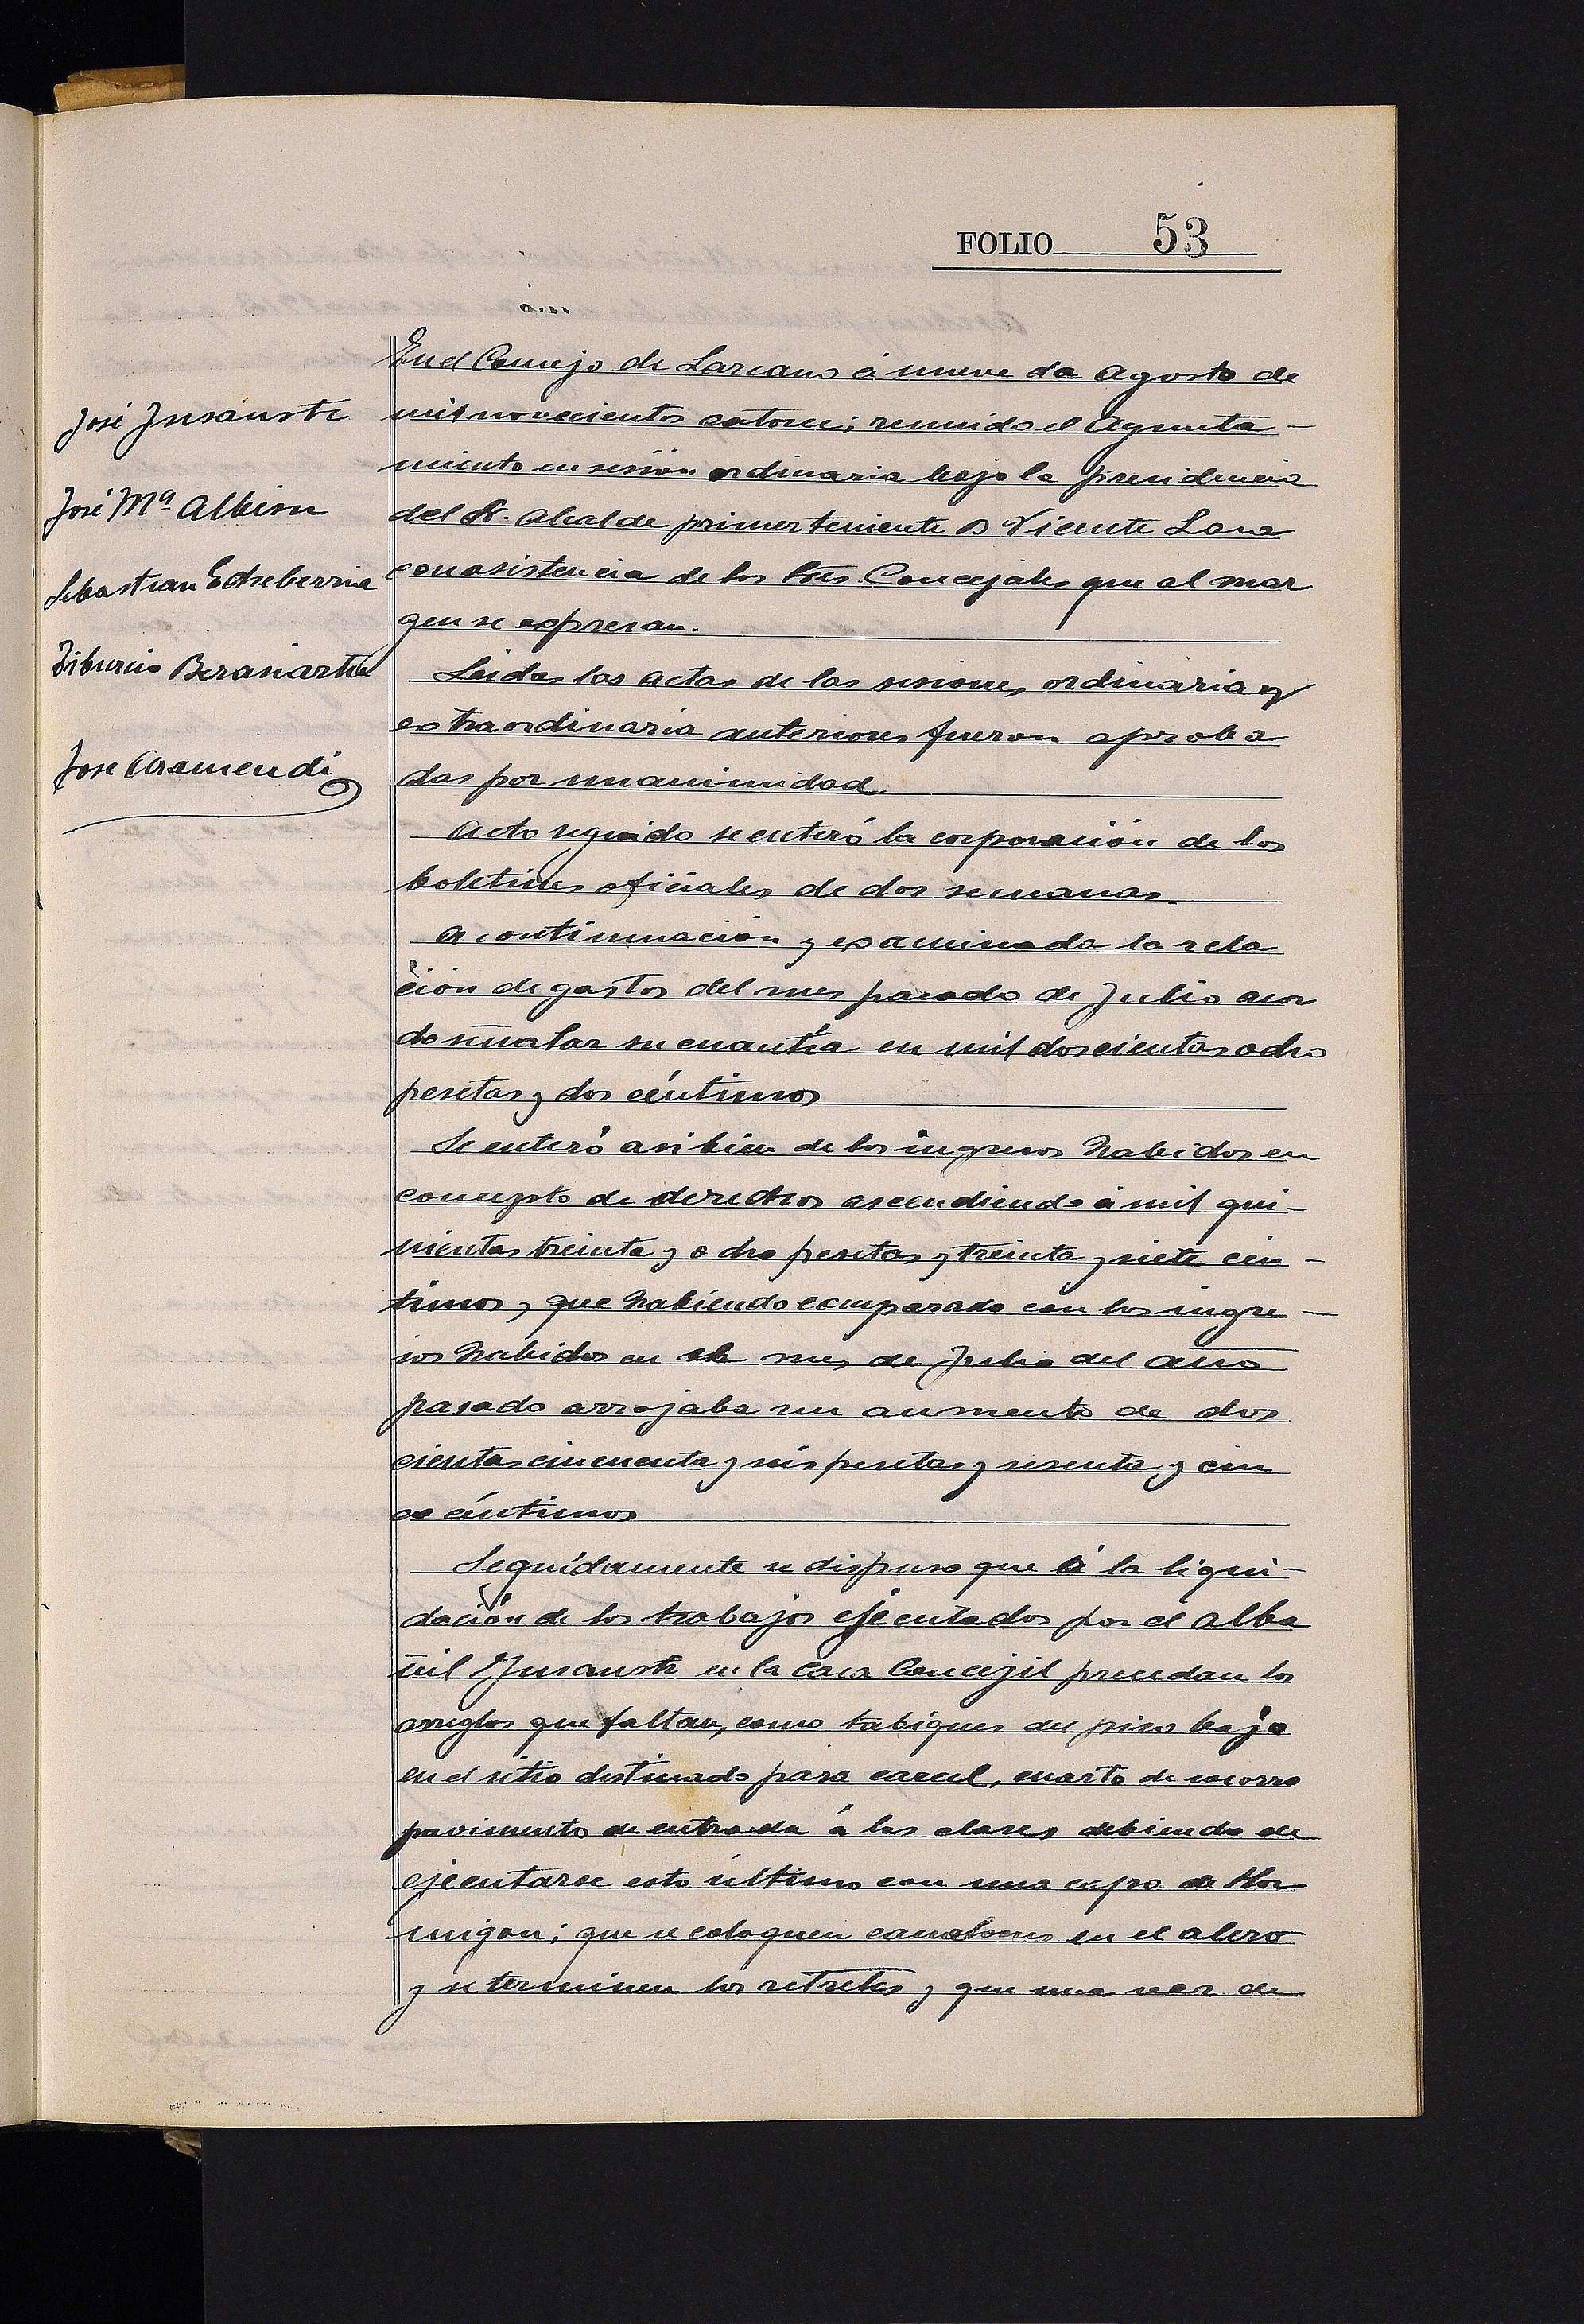 FOLIO 53
José Insausti
José Mª Albisu
Sebastian Etcheberria
Tiburcio Berasiartu
Jose Aramendi
En el Concejo de Lazcano á nueve de Agosto de
mil novecientos catorce; reunido el Ayunta-
miento en sesión ordinaria bajo la presidencia
del Sr. Alcalde primer teniente D Vicente Lasa
con asistencia de los Sres Concejales que al mar
gen se expresan.
Leidas las actas de las sesiones ordinaria y
extraordinaria anteriores fueron aproba
das por unanimidad
Acto seguido se enteró la corporación de los
boletines oficiales de dos semanas.
A continuación y examinada la rela
ción de gastos del mes pasado de Julio acor
do señalar su cuantía en mil doscientas ocho
pesetas y dos céntimos
Se enteró asi bien de los ingresos habidos en
concepto de derechos ascendiendo á mil qui-
nientas treinta y ocho pesetas y treinta y siete cén-
timos, que habiendo comparado con los ingre-
sos habidos en el mes de Julio del año
pasado arrojaba un aumento de dos
cientas cincuenta y seis pesetas y sesenta y cin
co céntimos
Seguidamente se dispuso que á la liqui-
dación de los trabajos ejecutados por el alba
ñil Insausti en la Casa Concejil precedan los
arreglos que faltan, como tabiques del piso bajo
en el sitio destinado para carcel, cuarto de socorro
pavimento de entrada á las clases debiendo de
ejecutarse esto último con una capa de Hor
migon; que se coloquen canalones en el alero
y se terminen los retretes y que una vez de